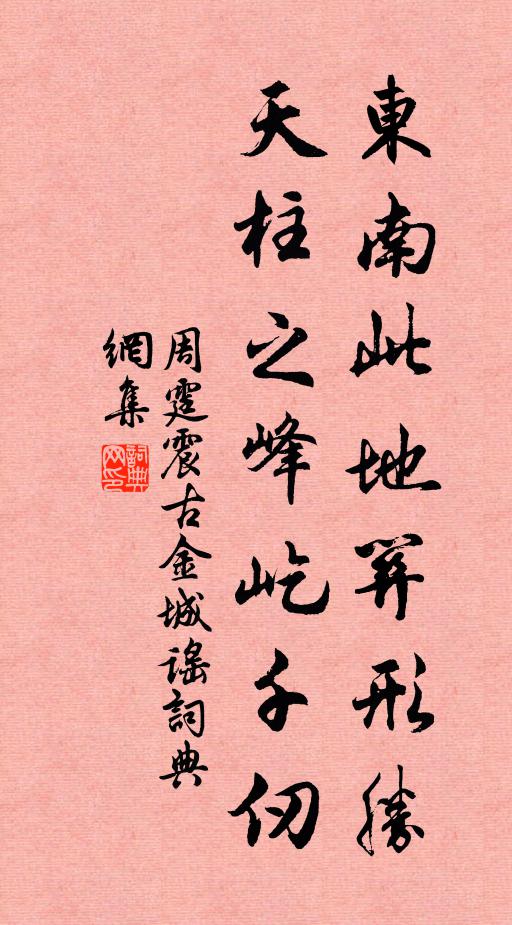 東南此地開形勝
天柱之峰屹千仞
周霆震古金城謠詞典
網集
詞典
网印